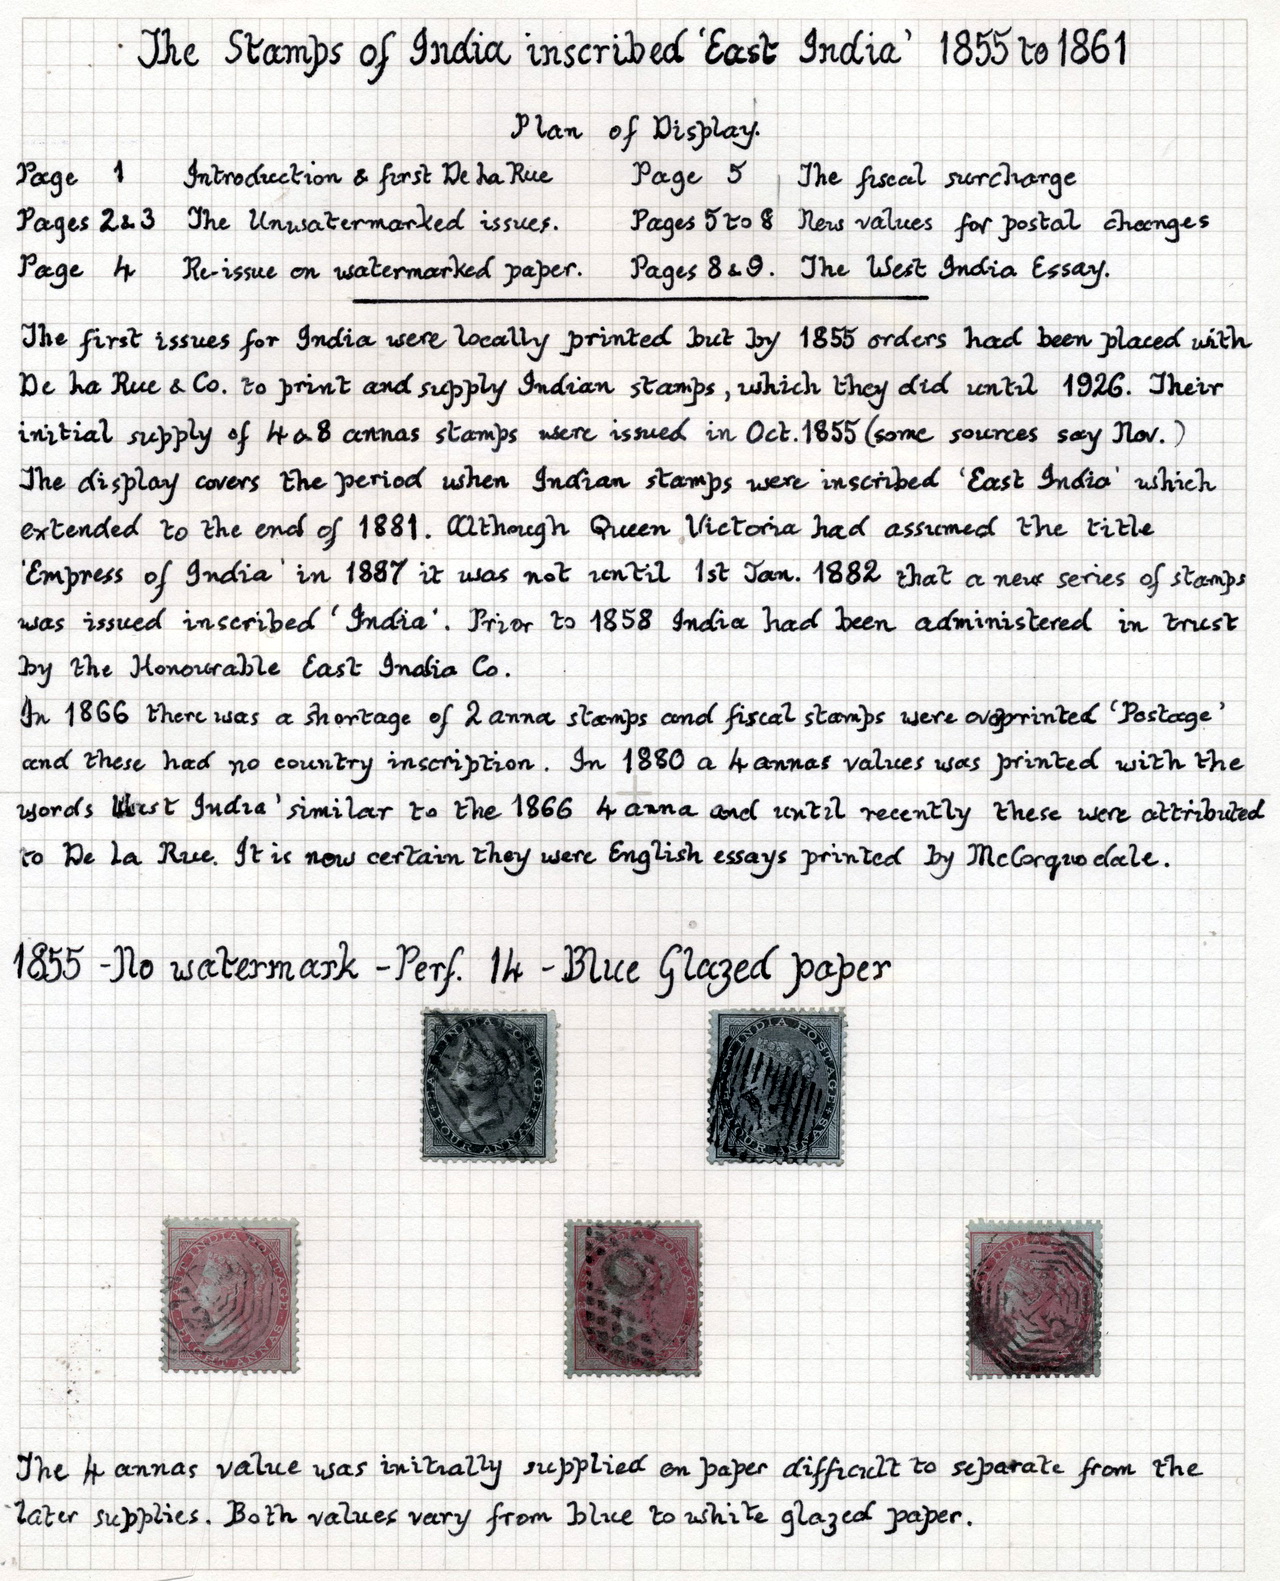 The Stamps of India inscribed 'East India' 1855 to 1861
Plan of Display.
Page 1 Introduction & first De La Rue Page 5 The fiscal surcharge
Pages 2 & 3 The Unwatermarked issues. Pages 5 to 8 New values for postal changes
Page 4 Re-issue on watermarked paper. Pages 8 & 9. The West India Essay.
The first issues for India were locally printed but by 1855 orders had been placed with
De La Rue & Co. to print and supply Indian stamps, which they did until 1926. Their
initial supply of 4 & 8 annas stamps were issued in Oct. 1855 (some sources say Nov.)
The display covers the period when Indian stamps were inscribed 'East India' which
extended to the end of 1881. Although Queen Victoria had assumed the title
'Empress of India' in 1887 it was not until 1st Jan. 1882 that a new series of stamps
was issued inscribed 'India'. Prior to 1858 India had been administered in trust
by the Honourable East India Co.
In 1866 there was a shortage of 2 anna stamps and fiscal stamps were overprinted 'Postage'
and these had no country inscription. In 1880 a 4 annas values was printed with the
words West India' similar to the 1866 4 anna and until recently these were attributed
to De La Rue. It is now certain they were English essays printed by McCorquodale.
1855 - No watermark - Perf. 14 - Blue Glazed paper
INDIA POSTAGE
FOUR ANNAS
INDIA POSTAGE
FOUR ANNAS
EAST INDIA POSTAGE
The 4 annas value was initially supplied on paper difficult to separate from the
later supplies. Both values vary from blue to white glazed paper.